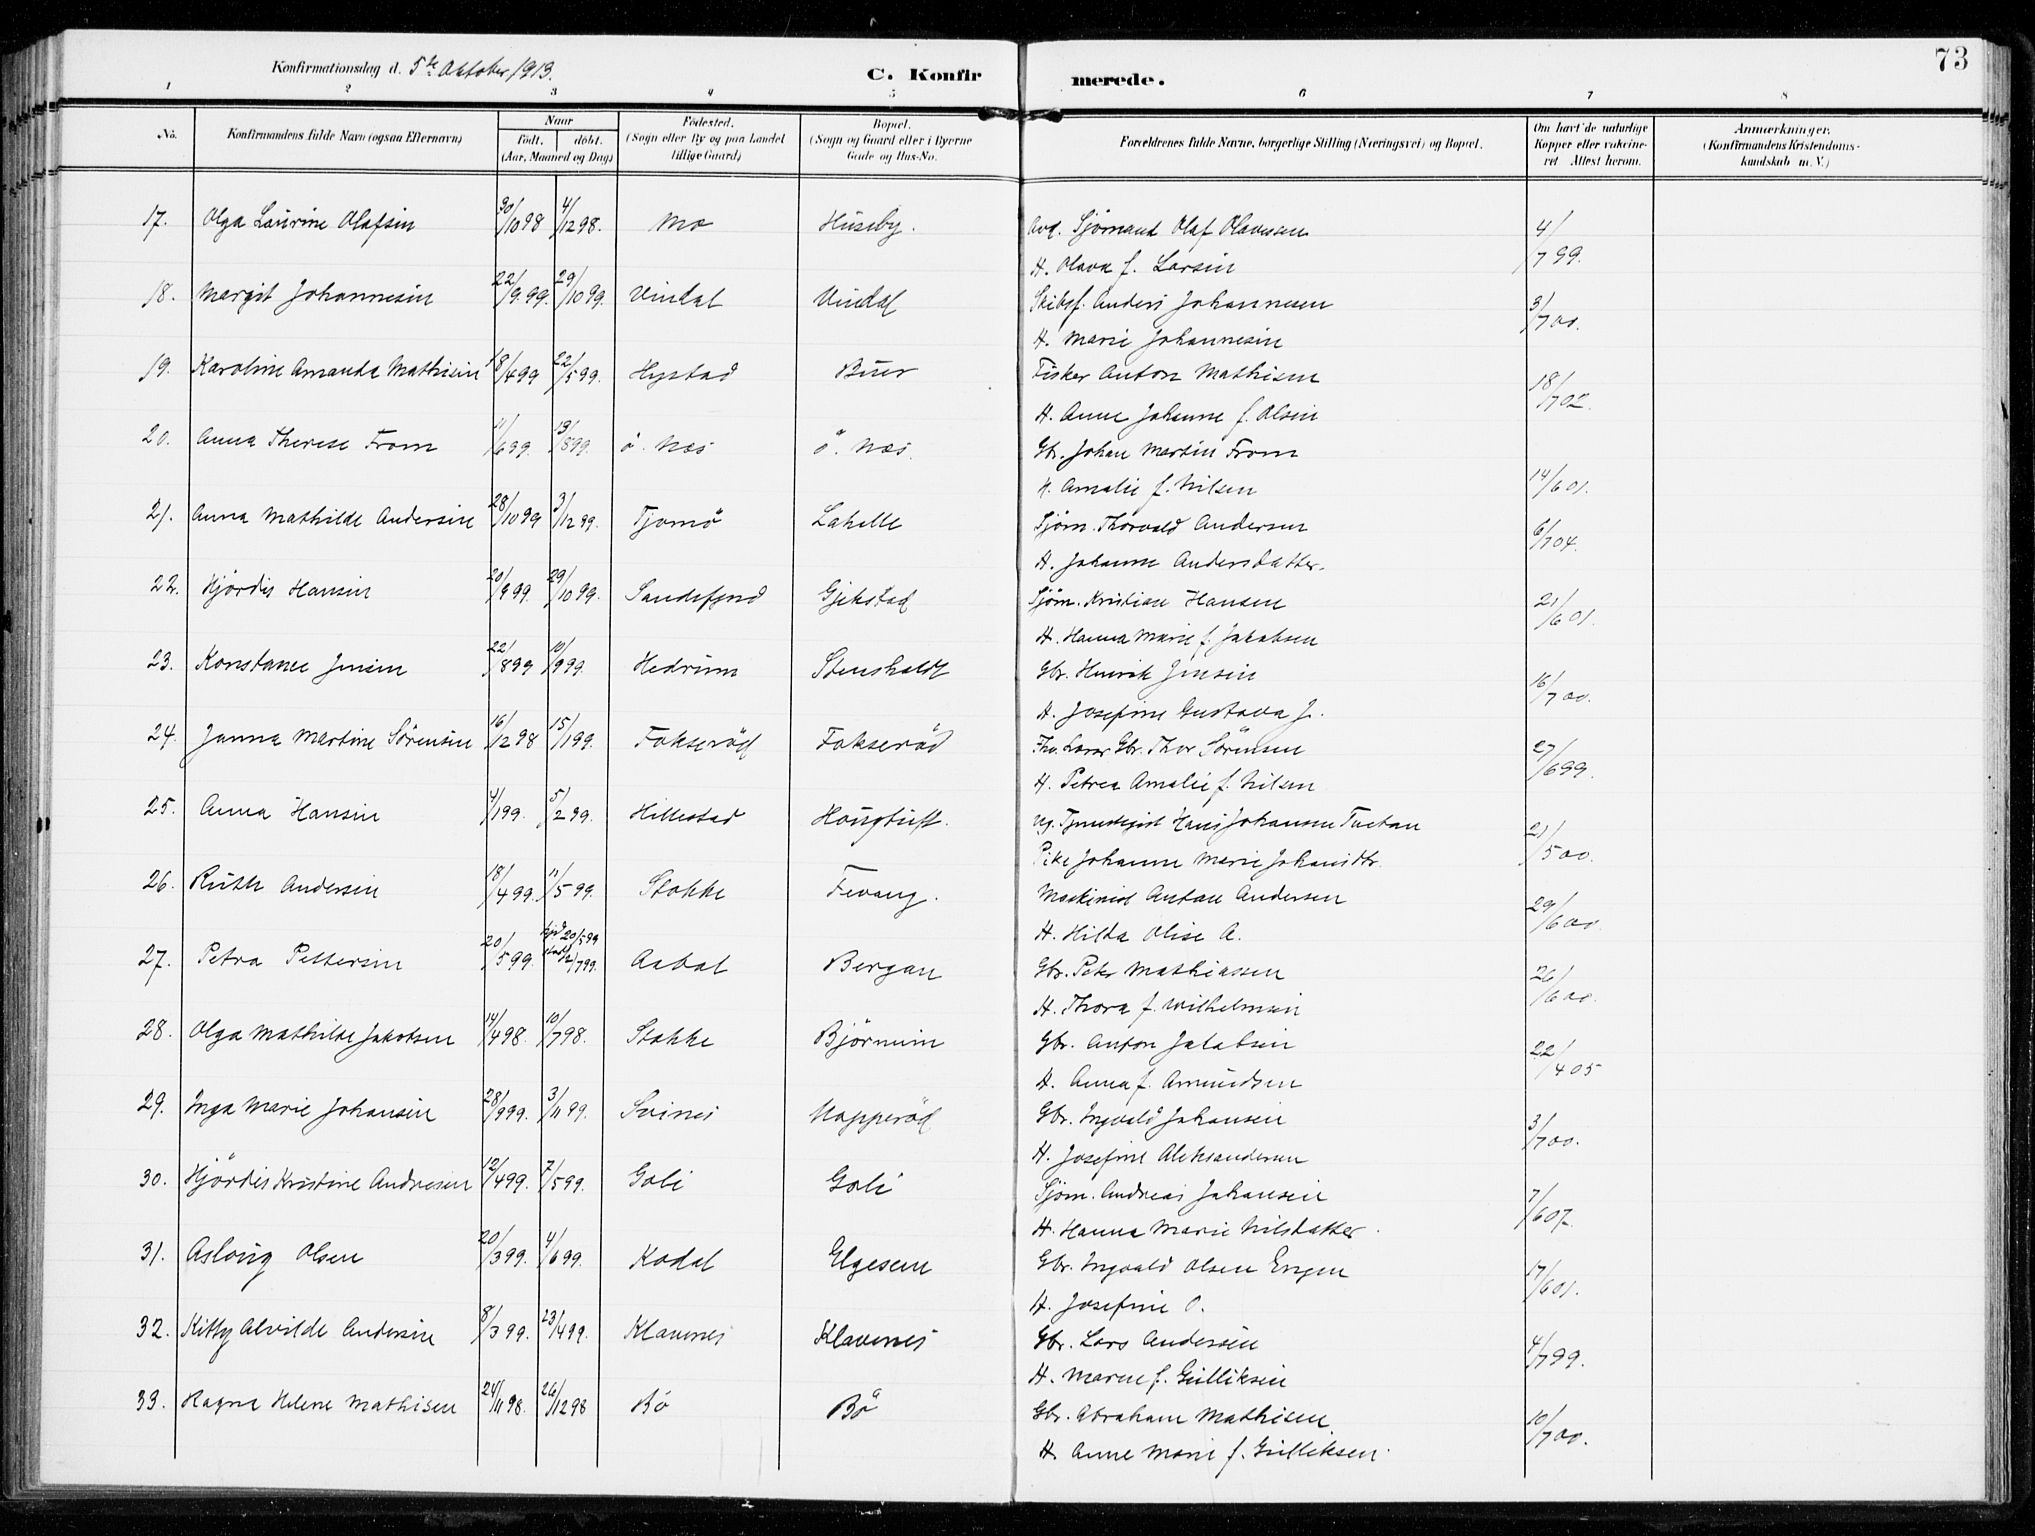 73
Konfirmationsdag d. 5te Oktober 1913.
C. Konfirmerede.
1 2 3 4 5 6 7 8
No.
Konfirmandens fulde Navn (ogsaa Efternavn)
Naar
født. døbt.
(Aar, Maaned og Dag)
Fødested.
(Sogn eller By og paa Landet
tillige Gaard)
Bopæl.
(Sogn og Gaard eller i Byerne
Gade og Hus-No.
Forældrenes fulde Navne, borgerlige Stilling (Næringsvei) og Bopæl.
Om havt de naturlige
Kopper eller vakcine-
ret Attest herom.
Anmærkninger.
(Konfirmandens Kristendoms-
kundskab m. V.)
17. Olga Laurine Olafsen 30/10 98 4/12 98. Mo Huseby. Avd. Sjømand Olaf Olavesen 4/7 99.
H. Olava f. Larsen
18. Margit Johannesen 22/9 99. 29/10 99. Vindal Vindal Skibsf. Anders Johannesen 3/7 00.
H. Marie Johannesen
19. Karoline Amanda Mathisen 18/4 99 22/5 99. Hystad Buer Fisker Anton Mathisen 18/7 02.
H. Anne Johanne f. Olsen
20. Anna Therese From 11/6 99. 13/8 99. ø. Næs ø. Næs. Gbr. Johan Martin From 14/6 01.
H. Amalie f. Nilsen
21. Anna Mathilde Andersen 28/10 99 3/12 99. Tjømø Lahelle Sjøm. Thorvald Andersen 6/7 04.
H. Johanne Andersdatter.
22. Hjørdis Hansen 20/9 99. 29/10 99. Sandefjord Gjekstad Sjøm. Kristian Hansen 21/6 01.
H. Hanna Marie f. Jakobsen
23. Konstance Jensen 22/8 99 10/9 99. Hedrum Stensholdt Gbr. Henrik Jensen 16/7 00.
H. Josefine Gustava J.
24. Janna Martine Sørensen 16/12 98 15/1 99. Fokserød Fokserød Fhv. Lærer Gbr. Thor Sørensen 27/6 99.
H. Petrea Amalie f. Nilsen
25. Anna Hansen 4/1 99. 5/2 99. Hillestad Hougtuft. Ug. Hans Johansen 21/5 00.
Pike Johanne Marie Johansdtr.
26. Ruth Andersen 18/4 99. 11/5 99. Stokke Fevang. Maskinist Anton Andersen 29/6 00.
H. Hilda Olise A.
27. Petra Pettersen 20/5 99. hjd 20/5 99 stadf. 2/7 99. Aabal Bergan Gbr. Peter Mathiassen 26/6 00.
H. Thora f. Wilhelmsen
28. Olga Mathilde Jakobsen 14/4 98. 10/7 98. Stokke Bjørnum Gbr. Anton Jakobsen 22/4 05
H. Anna f. Amundsen
29. Inga Marie Johansen 28/9 99. 3/11 99. Svines Napperød Gbr. Ingvald Johansen 3/7 00.
H. Josefine Aleksandersen
30. Hjørdis Kristine Andresen 12/4 99. 7/5 99. Goli Goli Sjøm. Andreas Johansen 7/6 07.
H. Hanna Marie Nilsdatter.
31. Asloug Olsen 20/3 99. 4/6 99. Kodal Elgesem Gbr. Ingvald Olsen Engen 17/6 01.
H. Josefine O.
32. Kitty Alvilde Andersen 8/3 99. 23/4 99. Klavenes Klavenes Gbr. Lars Andersen 4/7 99.
H. Maren f. Gulliksen
33. Ragna Helene Mathisen 24/11 98. 26/12 98 Bø Bø Gbr. Abraham Mathisen 10/7 00.
H. Anne Marie f. Gulliksen.